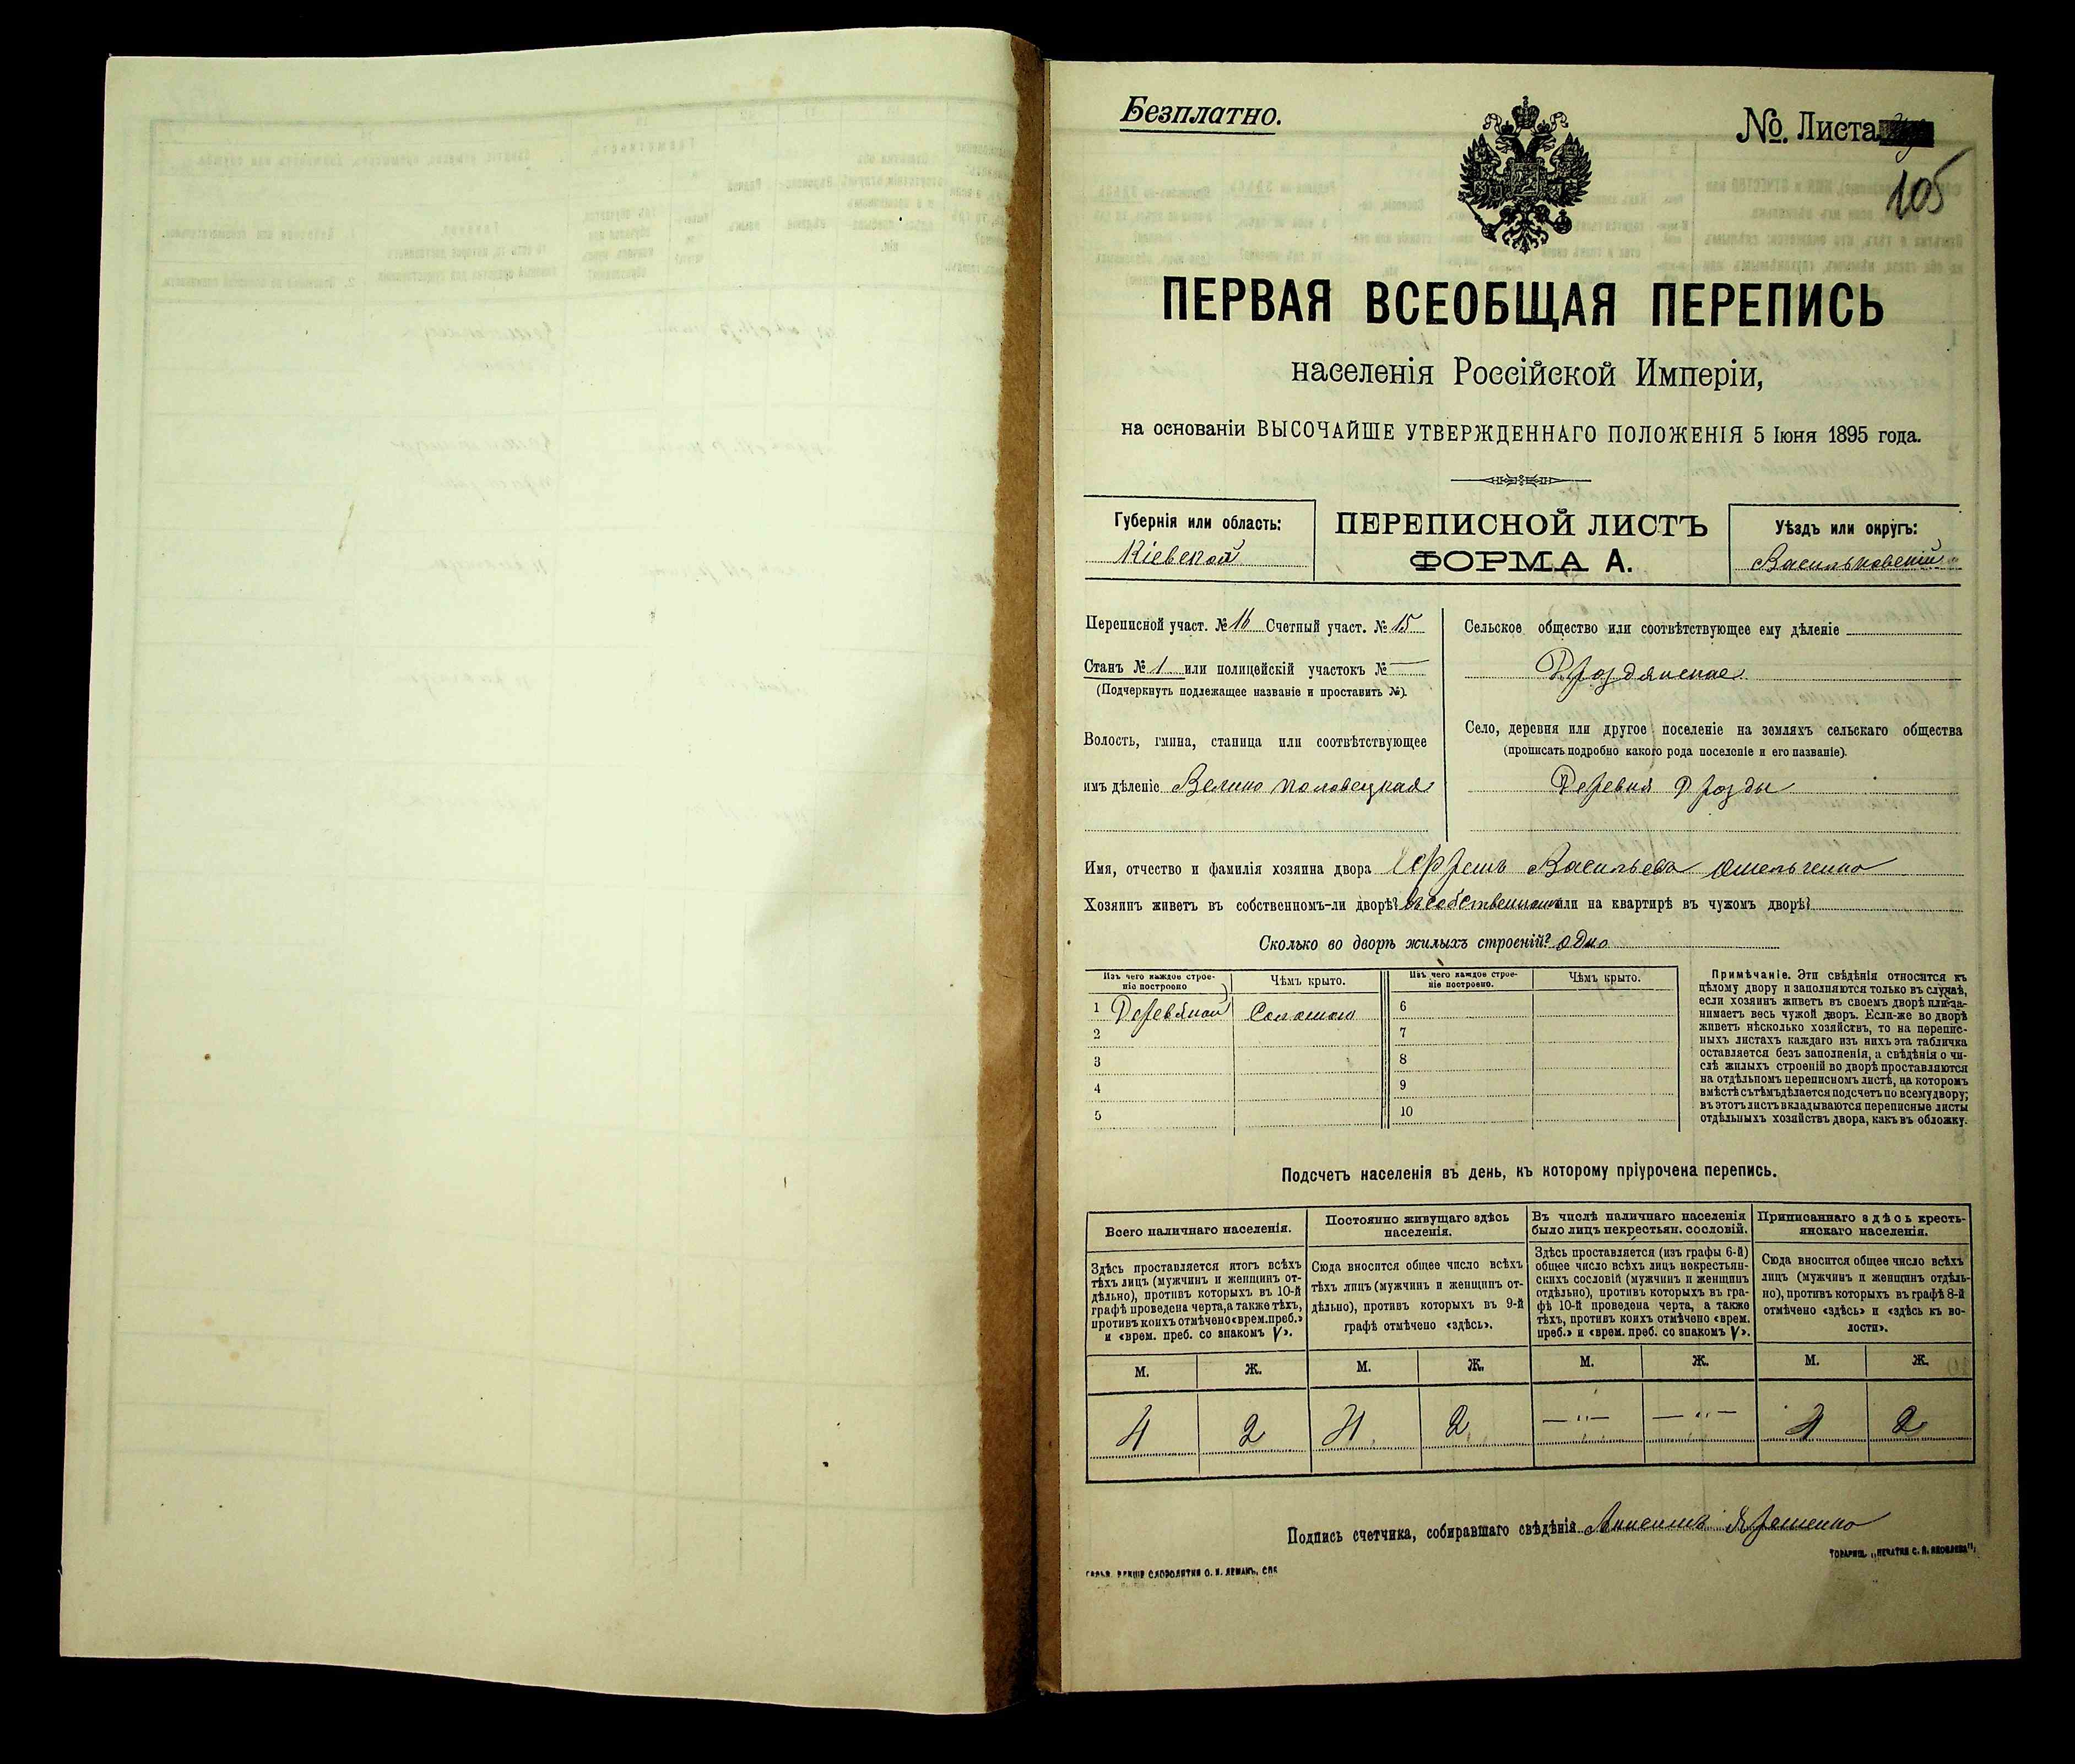 Безплатно.
№. Листа
105
ПЕРВАЯ ВСЕОБЩАЯ ПЕРЕПИСЬ
населенія Россійской Имперіи,
на основаніи ВЫСОЧАЙШЕ УТВЕРЖДЕННАГО ПОЛОЖЕНІЯ 5 Іюня 1895 года.
Губернія или область:
Кіевской
ПЕРЕПИСНОЙ ЛИСТЪ
ФОРМА А.
Уѣздъ или округъ:
Васильковскій
Переписной участ. № 16 Счетный участ. № 15
Станъ № 1 или полицейскій участокъ № —
(Подчеркнуть подлежащее названіе и проставить №).
Волость, гмина, станица или соотвѣтствующее
имъ дѣленіе Велико половецкая
Сельское общество или соотвѣтствующее ему дѣленіе
Дроздянское
Село, деревня или другое поселеніе на земляхъ сельскаго общества
(прописать подробно какого рода поселеніе и его названіе).
Деревня Дрозды
Имя, отчество и фамилія хозяина двора Ефремъ Васильевъ Омельченко
Хозяинъ живетъ въ собственномъ-ли дворѣ? въ собственномъ или на квартирѣ въ чужомъ дворѣ?
Сколько во дворѣ жилыхъ строеній? одно
Изъ чего каждое строе-
ніе построено
Чѣмъ крыто.
Изъ чего каждое строе-
ніе построено.
Чѣмъ крыто.
1 Деревяной Соломою 6
2 7
3 8
4 9
5 10
Примѣчаніе. Эти свѣдѣнія относятся къ
цѣлому двору и заполняются только въ случаѣ,
если хозяинъ живетъ въ своемъ дворѣ или за-
нимаетъ весь чужой дворъ. Если-же во дворѣ
живетъ нѣсколько хозяйствъ, то на перепис-
ныхъ листахъ каждаго изъ нихъ эта табличка
оставляется безъ заполненія, а свѣдѣнія о чи-
слѣ жилыхъ строеній во дворѣ проставляются
на отдѣльномъ переписномъ листѣ, на которомъ
вмѣстѣ съ тѣмъ дѣлается подсчетъ по всему двору;
въ этотъ листъ вкладываются переписные листы
отдѣльныхъ хозяйствъ двора, какъ въ обложку.
Подсчетъ населенія въ день, къ которому пріурочена перепись.
Всего наличнаго населенія.
Здѣсь проставляется итогъ всѣхъ
тѣхъ лицъ (мужчинъ и женщинъ от-
дѣльно), противъ которыхъ въ 10-й
графѣ проведена черта, а также тѣхъ,
противъ коихъ отмѣчено «врем. преб.»
и «врем. преб. со знакомъ V».
Постоянно живущаго здѣсь
населенія.
Сюда вносится общее число всѣхъ
тѣхъ лицъ (мужчинъ и женщинъ от-
дѣльно), противъ которыхъ въ 9-й
графѣ отмѣчено «здѣсь».
Въ числѣ наличнаго населенія
было лицъ некрестьян. сословій.
Здѣсь проставляется (изъ графы 6-й)
общее число всѣхъ лицъ некрестьян-
скихъ сословій (мужчинъ и женщинъ
отдѣльно), противъ которыхъ въ гра-
фѣ 10-й проведена черта, а также
тѣхъ, противъ коихъ отмѣчено «врем.
преб.» и «врем. преб. со знакомъ V».
Приписаннаго здѣсь кресть-
янскаго населенія.
Сюда вносится общее число всѣхъ
лицъ (мужчинъ и женщинъ отдѣль-
но), противъ которыхъ въ графѣ 8-й
отмѣчено «здѣсь» и «здѣсь къ во-
лости».
М. Ж. М. Ж. М. Ж. М. Ж.
4 2 4 2 — „ — — „ — 4 2
Подпись счетчика, собиравшаго свѣдѣнія Ярешенко
ТОВАРИЩ. „ПЕЧАТНЯ С. П. ЯКОВЛЕВА".
СЛОВОЛИТНИ О. И. ЛЕМАНЪ, СПБ